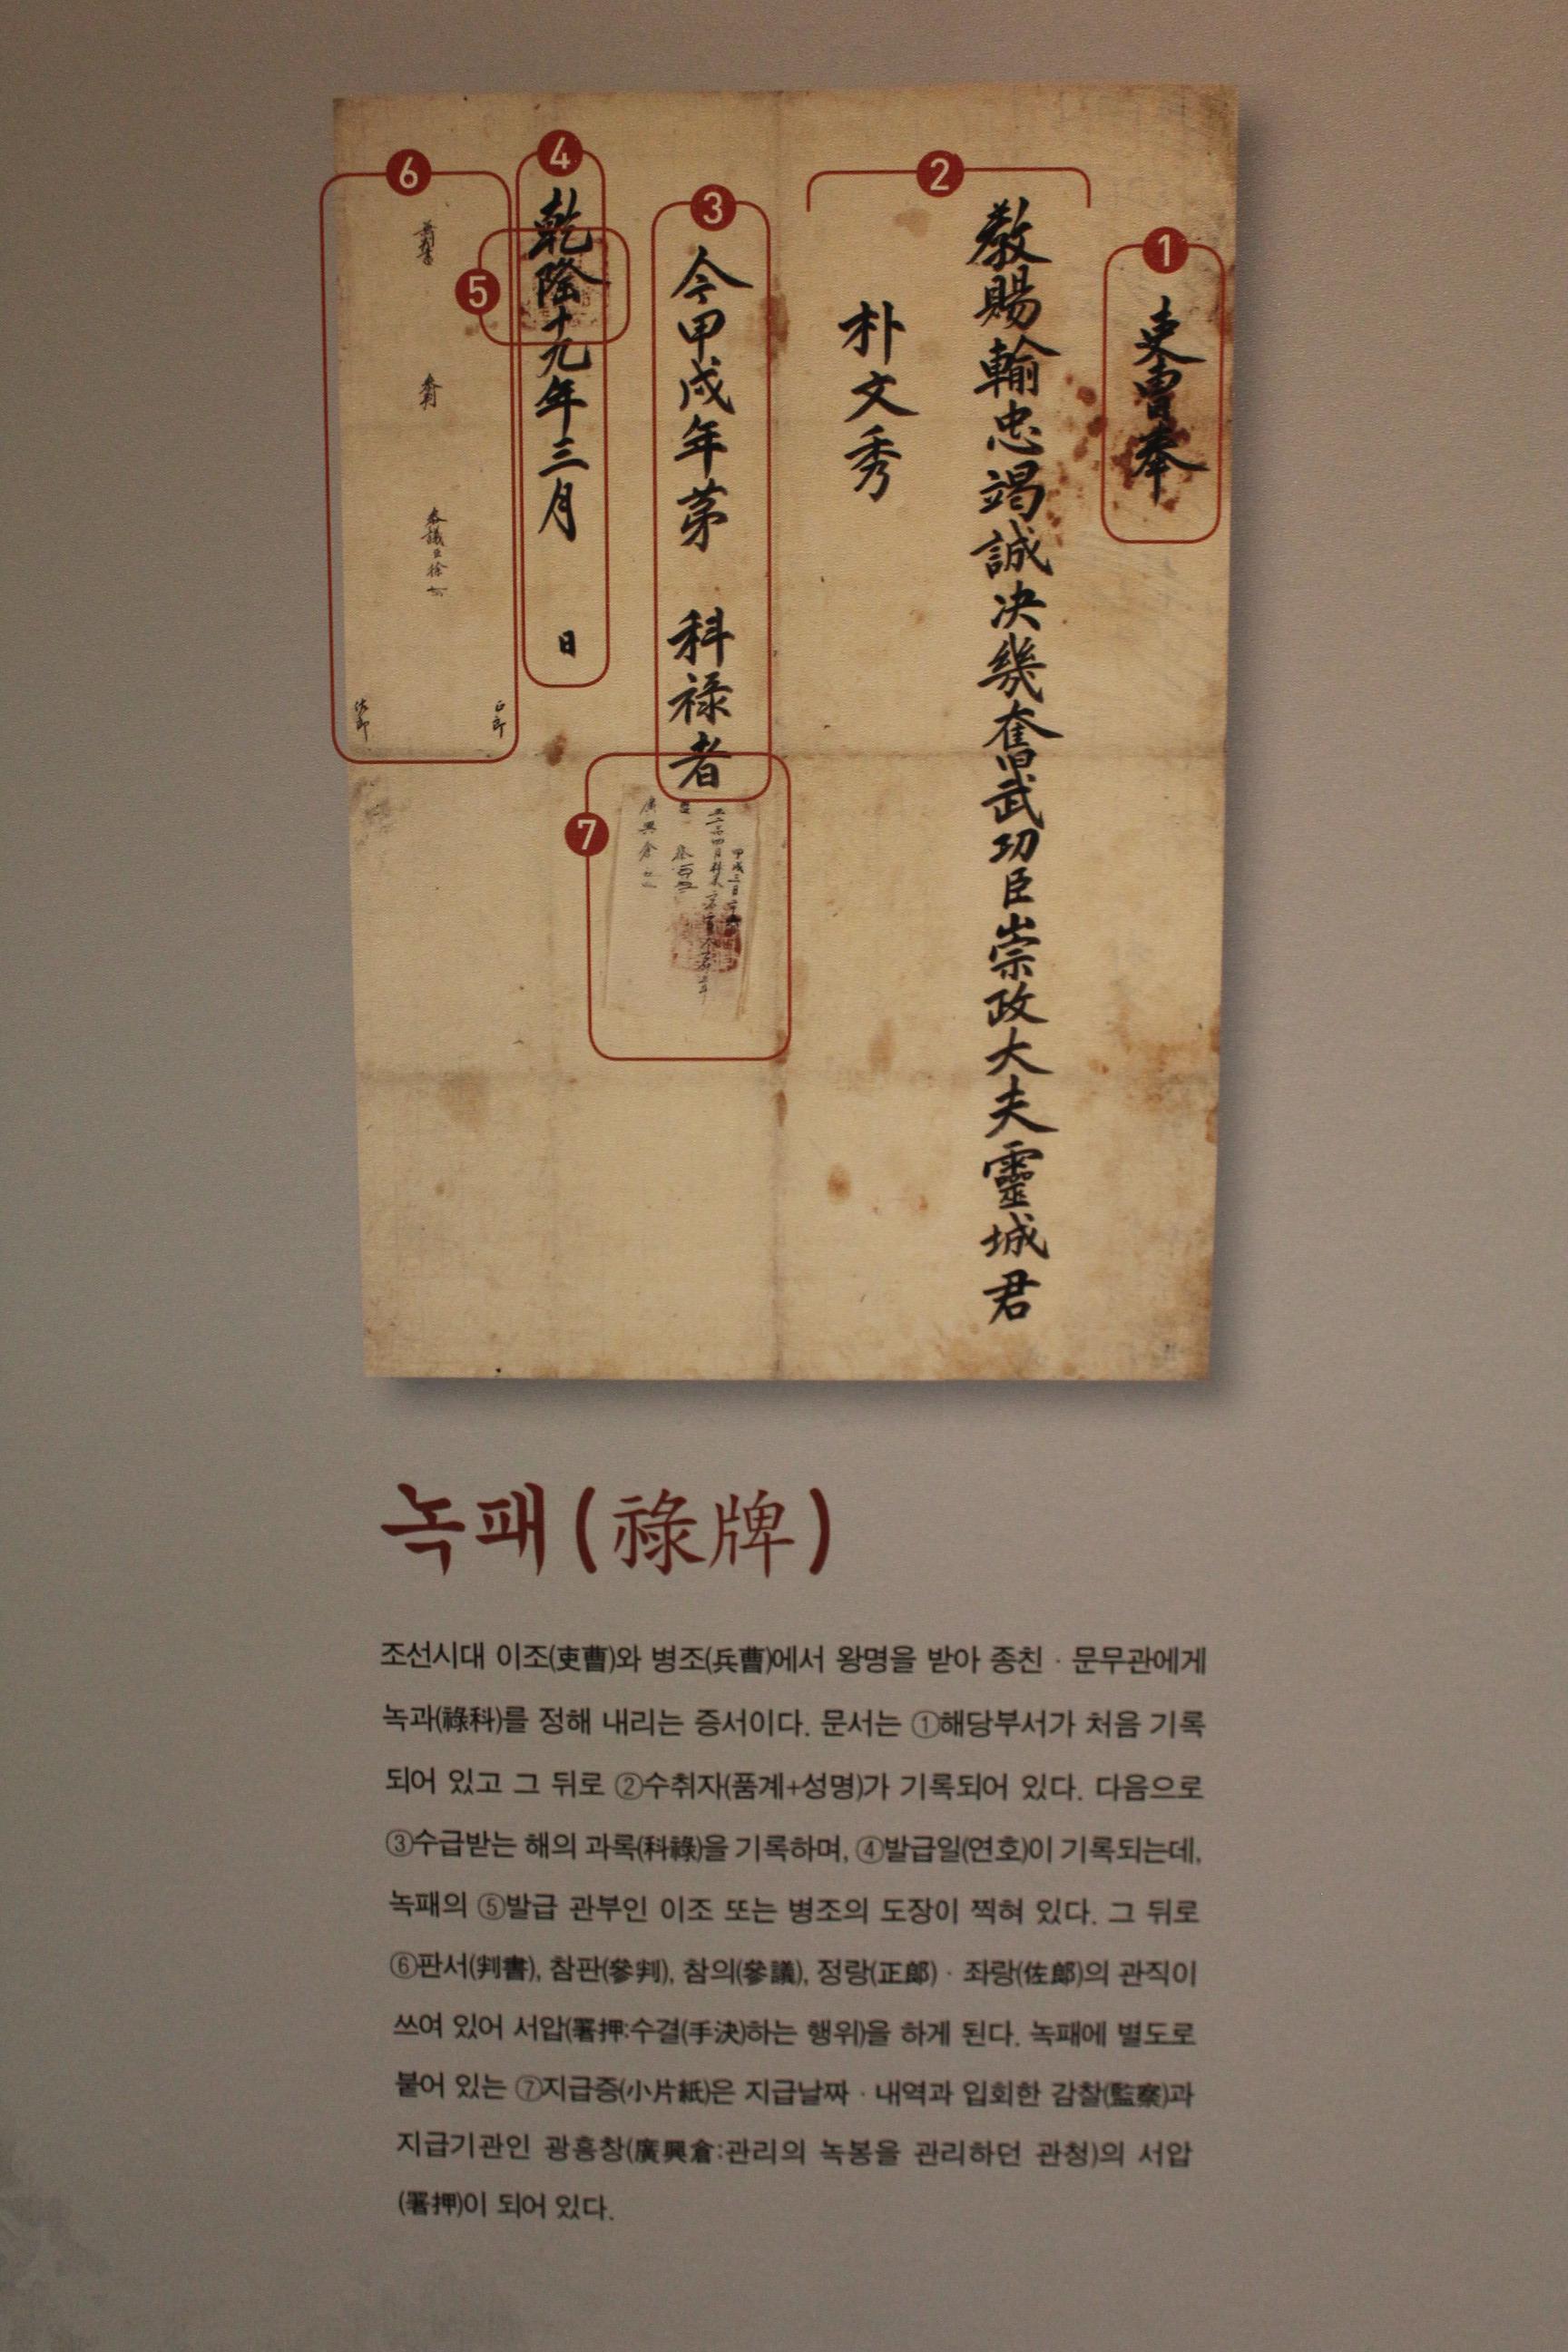 ①
吏曹奉
②
敎賜輸忠竭誠决幾奮武功臣崇政大夫靈城君
朴文秀
③
今甲戌年茅 科禄者
④
乾隆十九年三月 日
⑤
⑥
參判
參議臣徐
正郎
佐郎
⑦
廣興倉
녹패(祿牌)
조선시대 이조(吏曹)와 병조(兵曹)에서 왕명을 받아 종친 · 문무관에게
녹과(祿科)를 정해 내리는 증서이다. 문서는 ①해당부서가 처음 기록
되어 있고 그 뒤로 ②수취자(품계+성명)가 기록되어 있다. 다음으로
③수급받는 해의 과록(科祿)을 기록하며, ④발급일(연호)이 기록되는데,
녹패의 ⑤발급 관부인 이조 또는 병조의 도장이 찍혀 있다. 그 뒤로
⑥판서(判書), 참판(參判), 참의(參議), 정랑(正郞) · 좌랑(佐郞)의 관직이
쓰여 있어 서압(署押:수결(手決)하는 행위)을 하게 된다. 녹패에 별도로
붙어 있는 ⑦지급증(小片紙)은 지급날짜 · 내역과 입회한 감찰(監察)과
지급기관인 광흥창(廣興倉:관리의 녹봉을 관리하던 관청)의 서압
(署押)이 되어 있다.